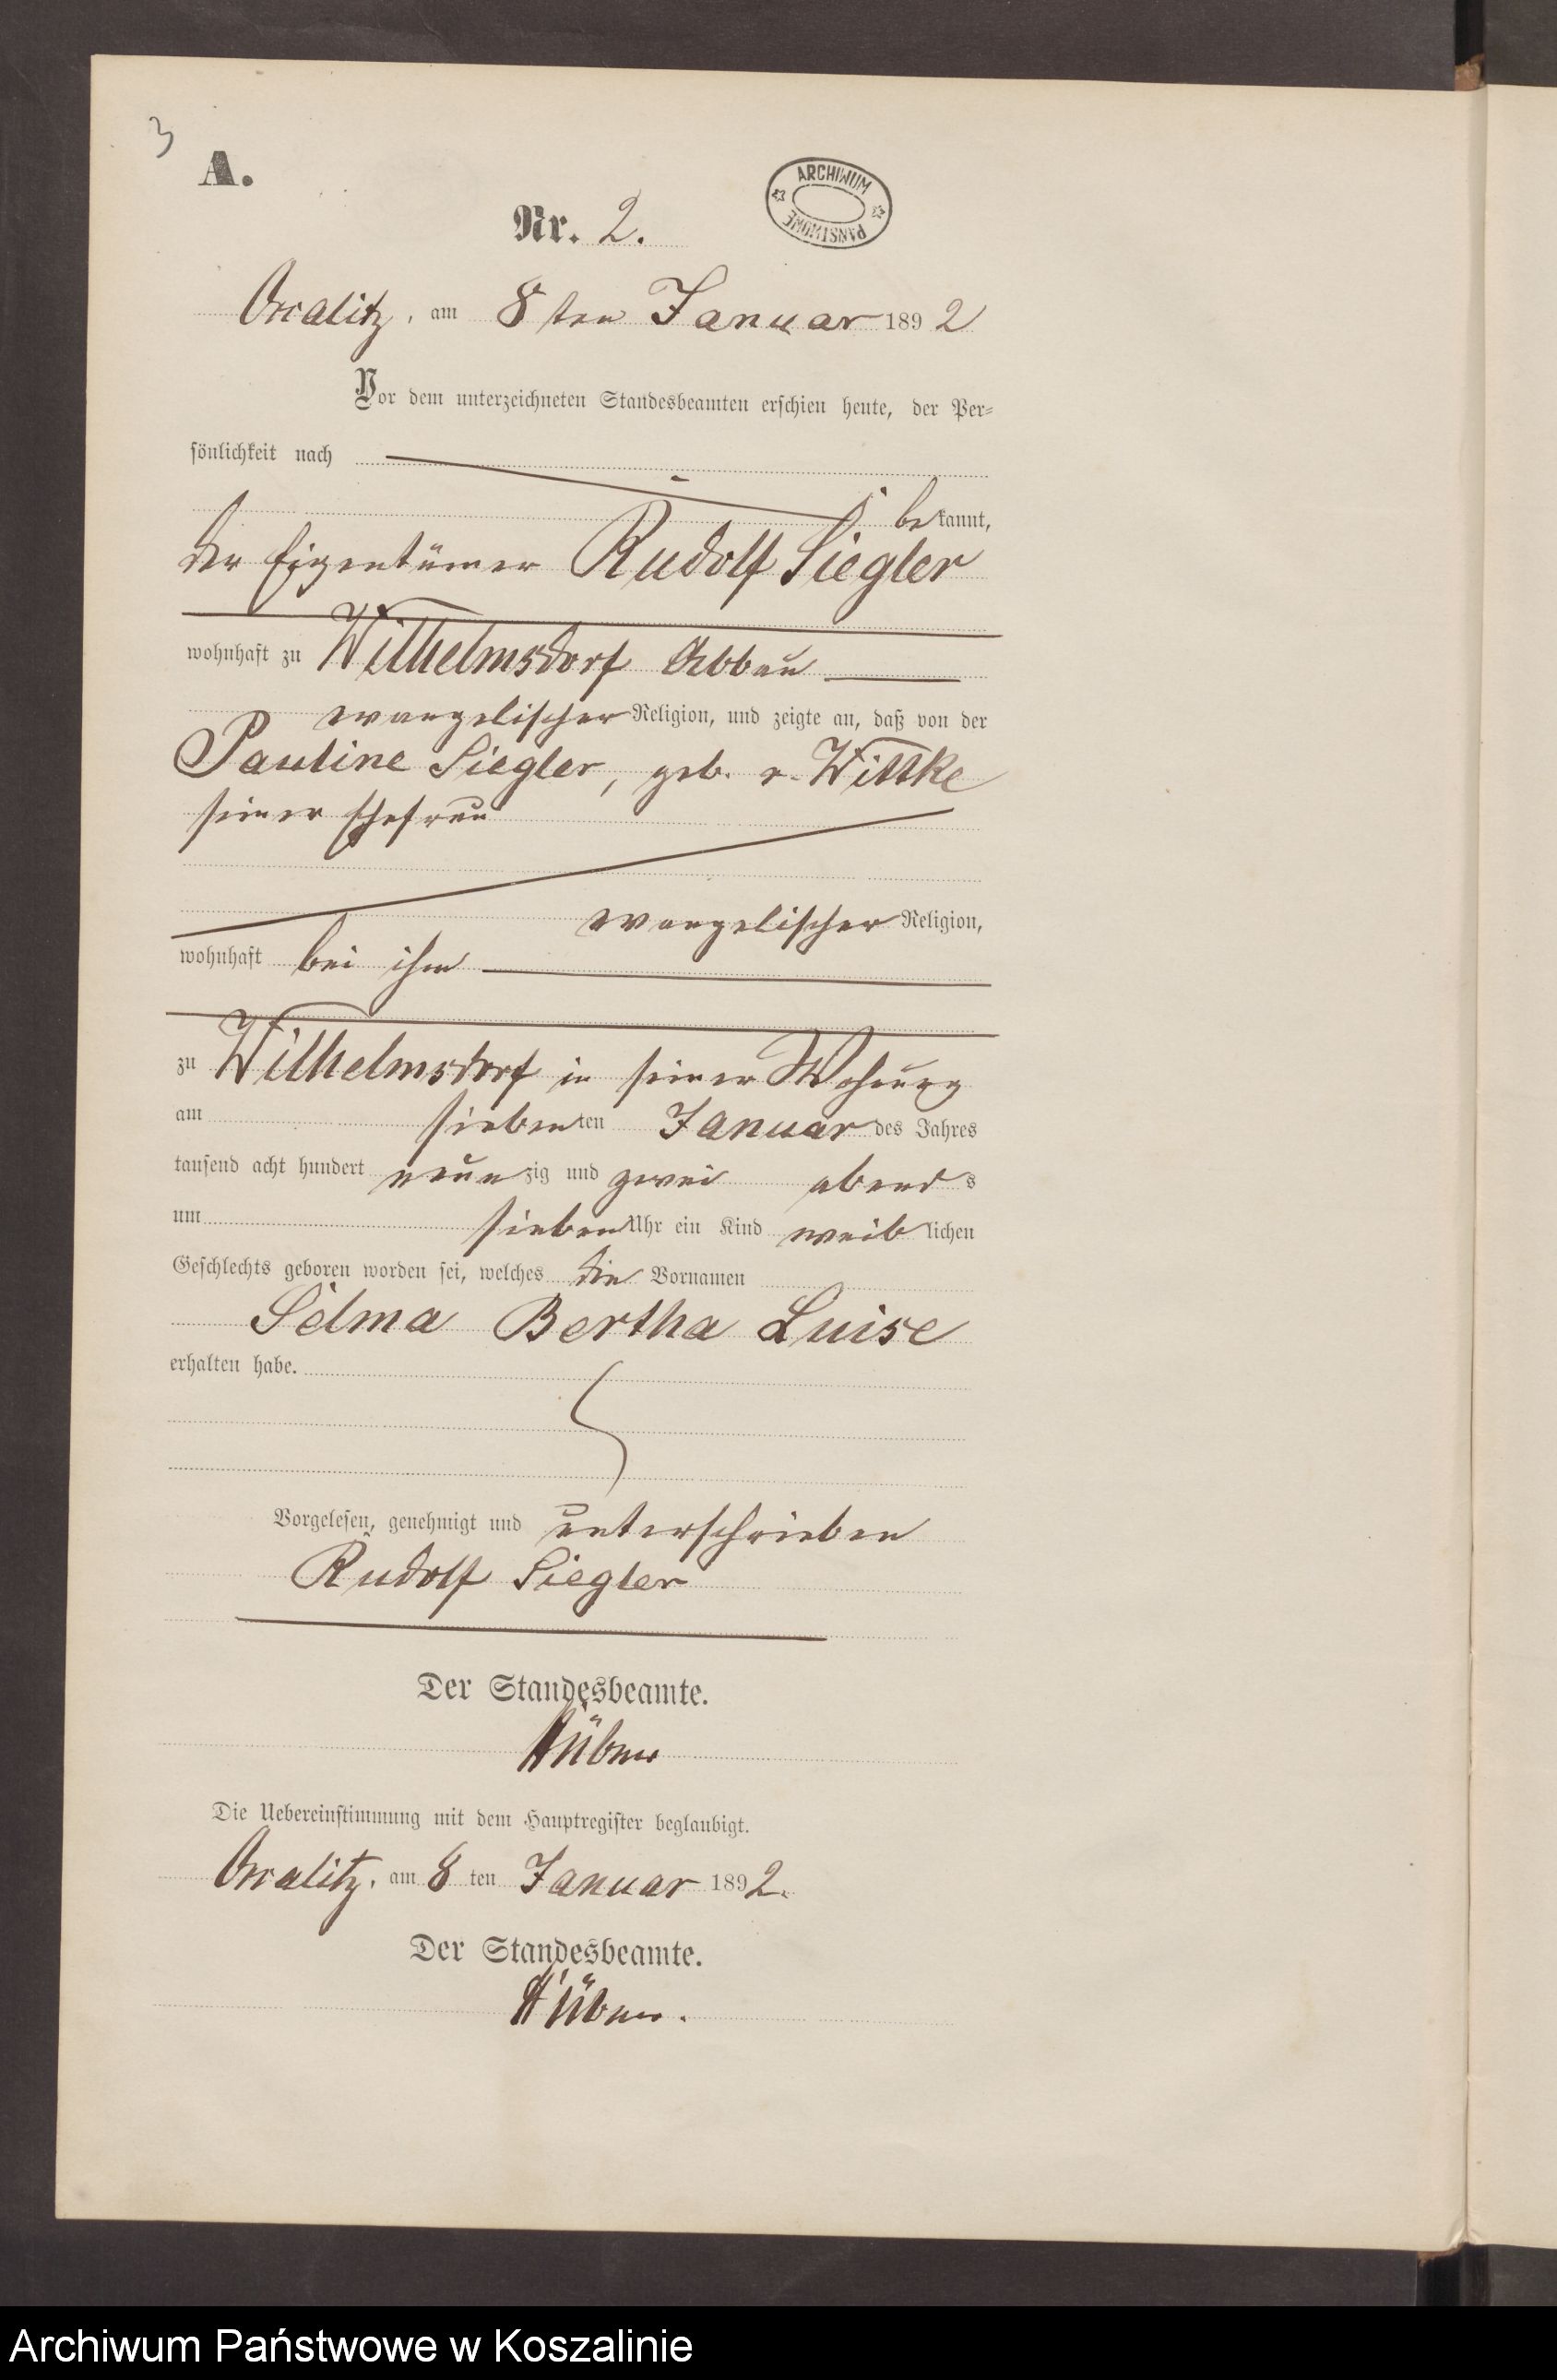 3
A.
ARCHIWUM PAŃSTWOWE
Nr. 2.
am 8 ten Januar 1892
Vor dem unterzeichneten Standesbeamten erschien heute, der Per-
sönlichkeit nach
bekannt,
der Eigentümer Rudolf Siegler
wohnhaft zu Wilhelmsdorf Abbau
evangelischer Religion, und zeigte an, daß von der
Pauline Siegler, geb. v. Wittke
seiner Ehefrau
evangelischer Religion,
wohnhaft bei ihm
zu Wilhelmsdorf in seiner Wohnung
am siebenten Januar des Jahres
tausend acht hundert neunzig und zwei abends
um sieben Uhr ein Kind weiblichen
Geschlechts geboren worden sei, welches die Vornamen
Selma Bertha Luise
erhalten habe.
Vorgelesen, genehmigt und unterschrieben
Rudolf Siegler
Der Standesbeamte.
Hübner
Die Uebereinstimmung mit dem Hauptregister beglaubigt.
am 8 ten Januar 1892.
Der Standesbeamte.
Hübner.
Archiwum Państwowe w Koszalinie